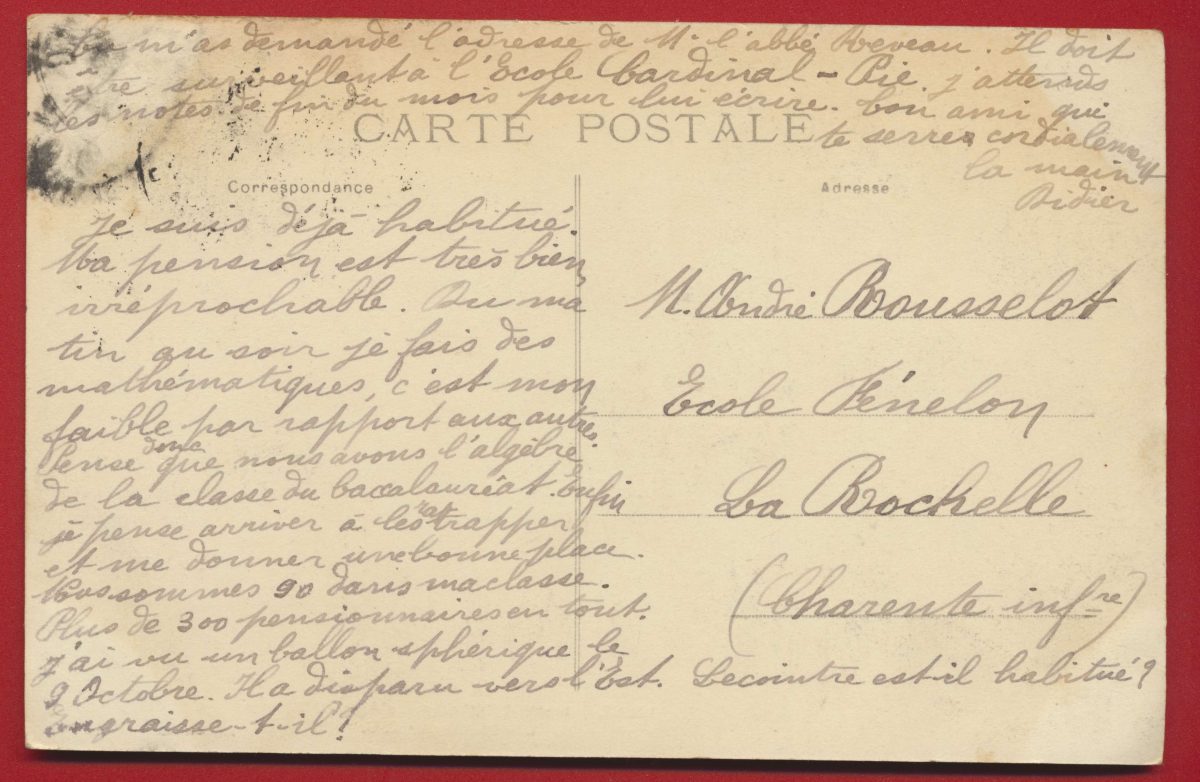 Tu m'as demandé l'adresse de M. l'abbé Reveau. Il doit
être surveillant à l'Ecole Cardinal-Pie. j'attends
les notes de fin du mois pour lui écrire. ton ami qui
te serre cordialement
la main
Didier
CARTE POSTALE
Correspondance
Je suis déjà habitué.
Ma pension est très bien,
irréprochable. Du ma
tin au soir je fais des
mathématiques, c'est mon
faible par rapport aux autres.
Pense donc que nous avons l'algèbre
de la classe du baccalauréat. Enfin
je pense arriver à les rattrapper
et me donner une bonne place.
Nous sommes 90 dans ma classe.
Plus de 300 pensionnaires en tout.
J'ai vu un ballon sphérique le
9 Octobre. Il a disparu vers l'Est. Lecointre est-il habitué?
Engraisse-t-il?
Adresse
M. André Rousselot
Ecole Fénelon
La Rochelle
(Charente infre)